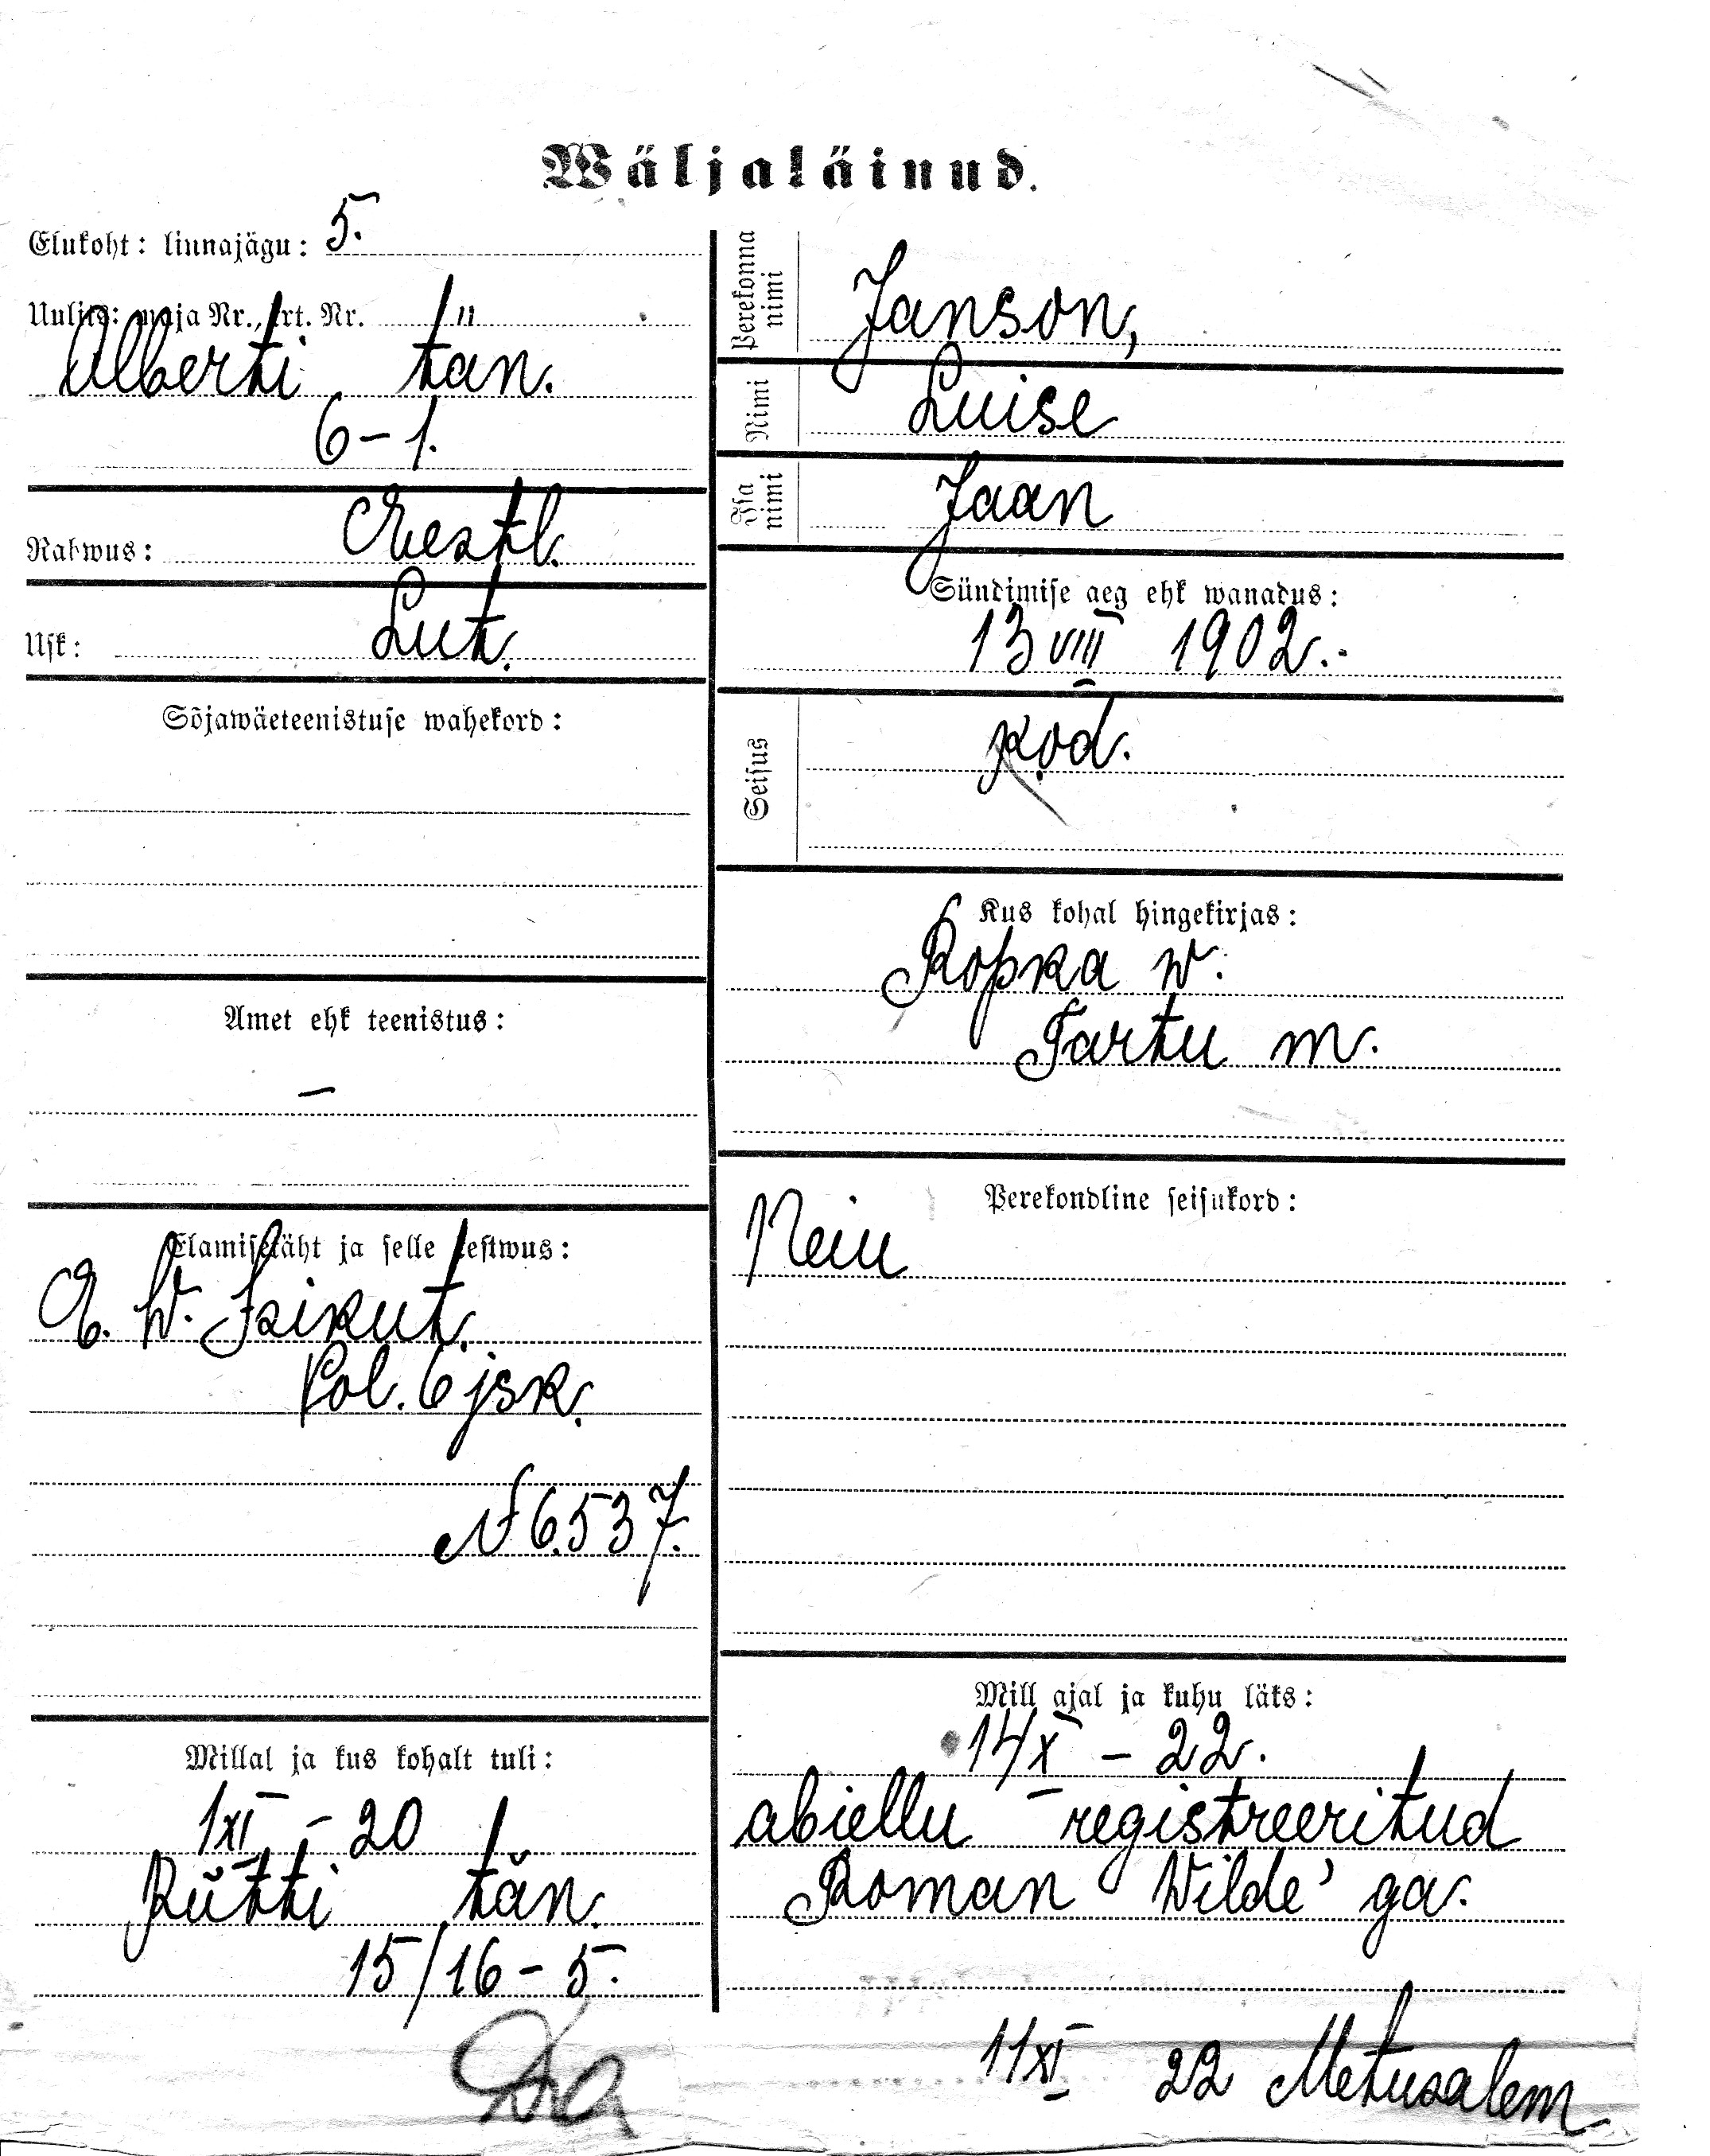 Wäljakäinud.
Elukoht: linnajagu: 5.
Uulits: maja Nr., krt. Nr.
Alberti tan.
6-1.
Rahwus: Eestl.
Usk: Lut.
Sõjawäeteenistuse wahekord:
Amet ehk teenistus:
–
Elamisetäht ja selle kestwus:
E. W. Isikut.
Pol. 6 jsk.
№ 6537.
Millal ja kus kohalt tuli:
1 XI – 20
Rüütli tän.
15/16 – 5.
Perekonna nimi
Janson,
Nimi
Luise
Isa nimi
Jaan
Sündimise aeg ehk wanadus:
13 VIII 1902.-
Seisus
kod.
Kus kohal hingekirjas:
Ropka w.
Tartu m.
Perekondline seisukord:
Neiu
Mill ajal ja kuhu läks:
14 X – 22.
abiellu registreeritud
Roman Wilde' ga.
11 XI 22 Metusalem